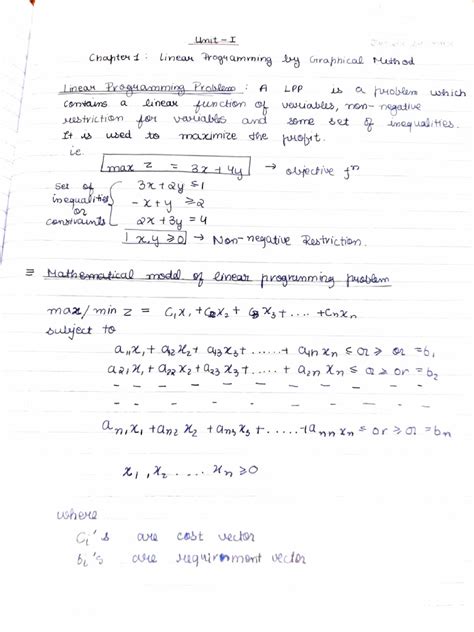 Unit - I
Chapter 1 : Linear Programming by Graphical Method
Linear Programming Problem : A LPP is a problem which
contains a linear function of variables, non-negative
restriction for variables and some set of inequalities.
It is used to maximize the profit.
i.e.
max z = 3x + 4y → objective fⁿ
set of inequalities or constraints
3x + 2y ≤ 1
-x + y ≥ 2
2x + 3y = 4
x, y ≥ 0 → Non-negative Restriction.
= Mathematical model of linear programming problem
max/min z = c₁x₁ + c₂x₂ + c₃x₃ + .... + cₙxₙ
subject to
a₁₁x₁ + a₁₂x₂ + a₁₃x₃ + ...... + a₁ₙxₙ ≤ or ≥ or = b₁
a₂₁x₁ + a₂₂x₂ + a₂₃x₃ + ..... + a₂ₙxₙ ≤ or ≥ or = b₂
aₙ₁x₁ + aₙ₂x₂ + aₙ₃x₃ + ...... + aₙₙxₙ ≤ or ≥ or = bₙ
x₁, x₂ .... xₙ ≥ 0
where
cᵢ's are cost vector
bᵢ's are requirnment vector